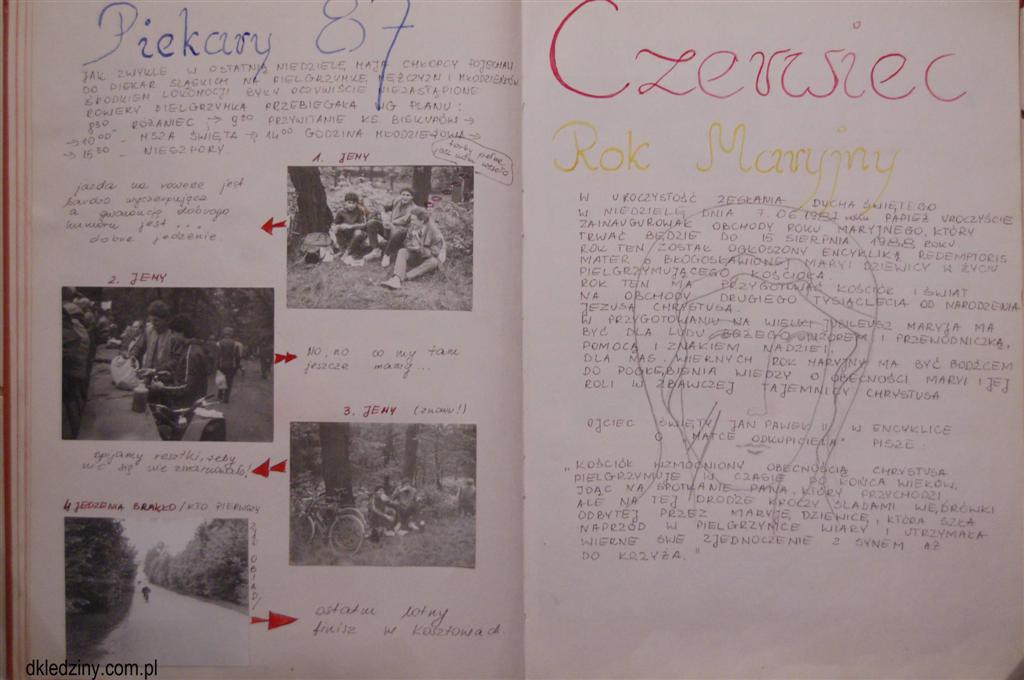 Piekary 87
JAK ZWYKLE W OSTATNIĄ NIEDZIELĘ MAJA CHŁOPCY POJECHALI
DO PIEKAR ŚLĄSKICH NA PIELGRZYMKĘ MĘŻCZYZN I MŁODZIEŃCÓW
ŚRODKIEM LOKOMOCJI BYŁY OCZYWIŚCIE NIEZASTĄPIONE
ROWERY PIELGRZYMKA PRZEBIEGAŁA WG PLANU:
8³⁰ RÓŻANIEC → 9³⁰ PRZYWITANIE KS. BISKUPÓW →
→ 10⁰⁰ - MSZA ŚWIĘTA → 14⁰⁰ GODZINA MŁODZIEŻOWA →
→ 15³⁰ - NIESZPORY.
torby pełne
1. JEMY
jazda na rowerze jest
bardzo wyczerpująca
a gwarancją dobrego
humoru jest ...
dobre jedzenie.
2. JEMY
No, no co my tam
jeszcze mamy...
3. JEMY (znowu!)
resztki, żeby
nic się nie zmarnowało!
4 JEDZENIA BRAKŁO / KTO PIERWSZY
ZJE OBIAD/
ostatni lotny
finisz w Kosztowach.
dkledziny.com.pl
Czerwiec
Rok Maryjny
W UROCZYSTOŚĆ ZESŁANIA DUCHA ŚWIĘTEGO
W NIEDZIELĘ DNIA 7.06.1987 roku PAPIEŻ UROCZYŚCIE
ZAINAUGUROWAŁ OBCHODY ROKU MARYJNEGO, KTÓRY
TRWAĆ BĘDZIE DO 15 SIERPNIA 1988 ROKU
ROK TEN ZOSTAŁ OGŁOSZONY ENCYKLIKĄ REDEMPTORIS
MATER O BŁOGOSŁAWIONEJ MARYI DZIEWICY W ŻYCIU
PIELGRZYMUJĄCEGO KOŚCIOŁA
ROK TEN MA PRZYGOTOWAĆ KOŚCIÓŁ I ŚWIAT
NA OBCHODY DRUGIEGO TYSIĄCLECIA OD NARODZENIA
JEZUSA CHRYSTUSA.
W PRZYGOTOWANIU NA WIELKI JUBILEUSZ MARYJA MA
BYĆ DLA LUDU BOŻEGO WZOREM I PRZEWODNICZKĄ,
POMOCĄ I ZNAKIEM NADZIEI.
DLA NAS WIERNYCH ROK MARYJNY MA BYĆ BODŹCEM
DO POGŁĘBIENIA WIEDZY O OBECNOŚCI MARYI I JEJ
ROLI W ZBAWCZEJ TAJEMNICY CHRYSTUSA
OJCIEC ŚWIĘTY JAN PAWEŁ II W ENCYKLICE
O "MATCE ODKUPICIELA" PISZE:
"KOŚCIÓŁ WZMOCNIONY OBECNOŚCIĄ CHRYSTUSA
PIELGRZYMUJE W CZASIE DO KOŃCA WIEKÓW,
IDĄC NA SPOTKANIE PANA, KTÓRY PRZYCHODZI
ALE NA TEJ DRODZE KROCZY ŚLADAMI WĘDRÓWKI
ODBYTEJ PRZEZ MARYJĘ DZIEWICĘ, KTÓRA SZŁA
NAPRZÓD W PIELGRZYMCE WIARY I UTRZYMAŁA
WIERNIE SWE ZJEDNOCZENIE Z SYNEM AŻ
DO KRZYŻA."